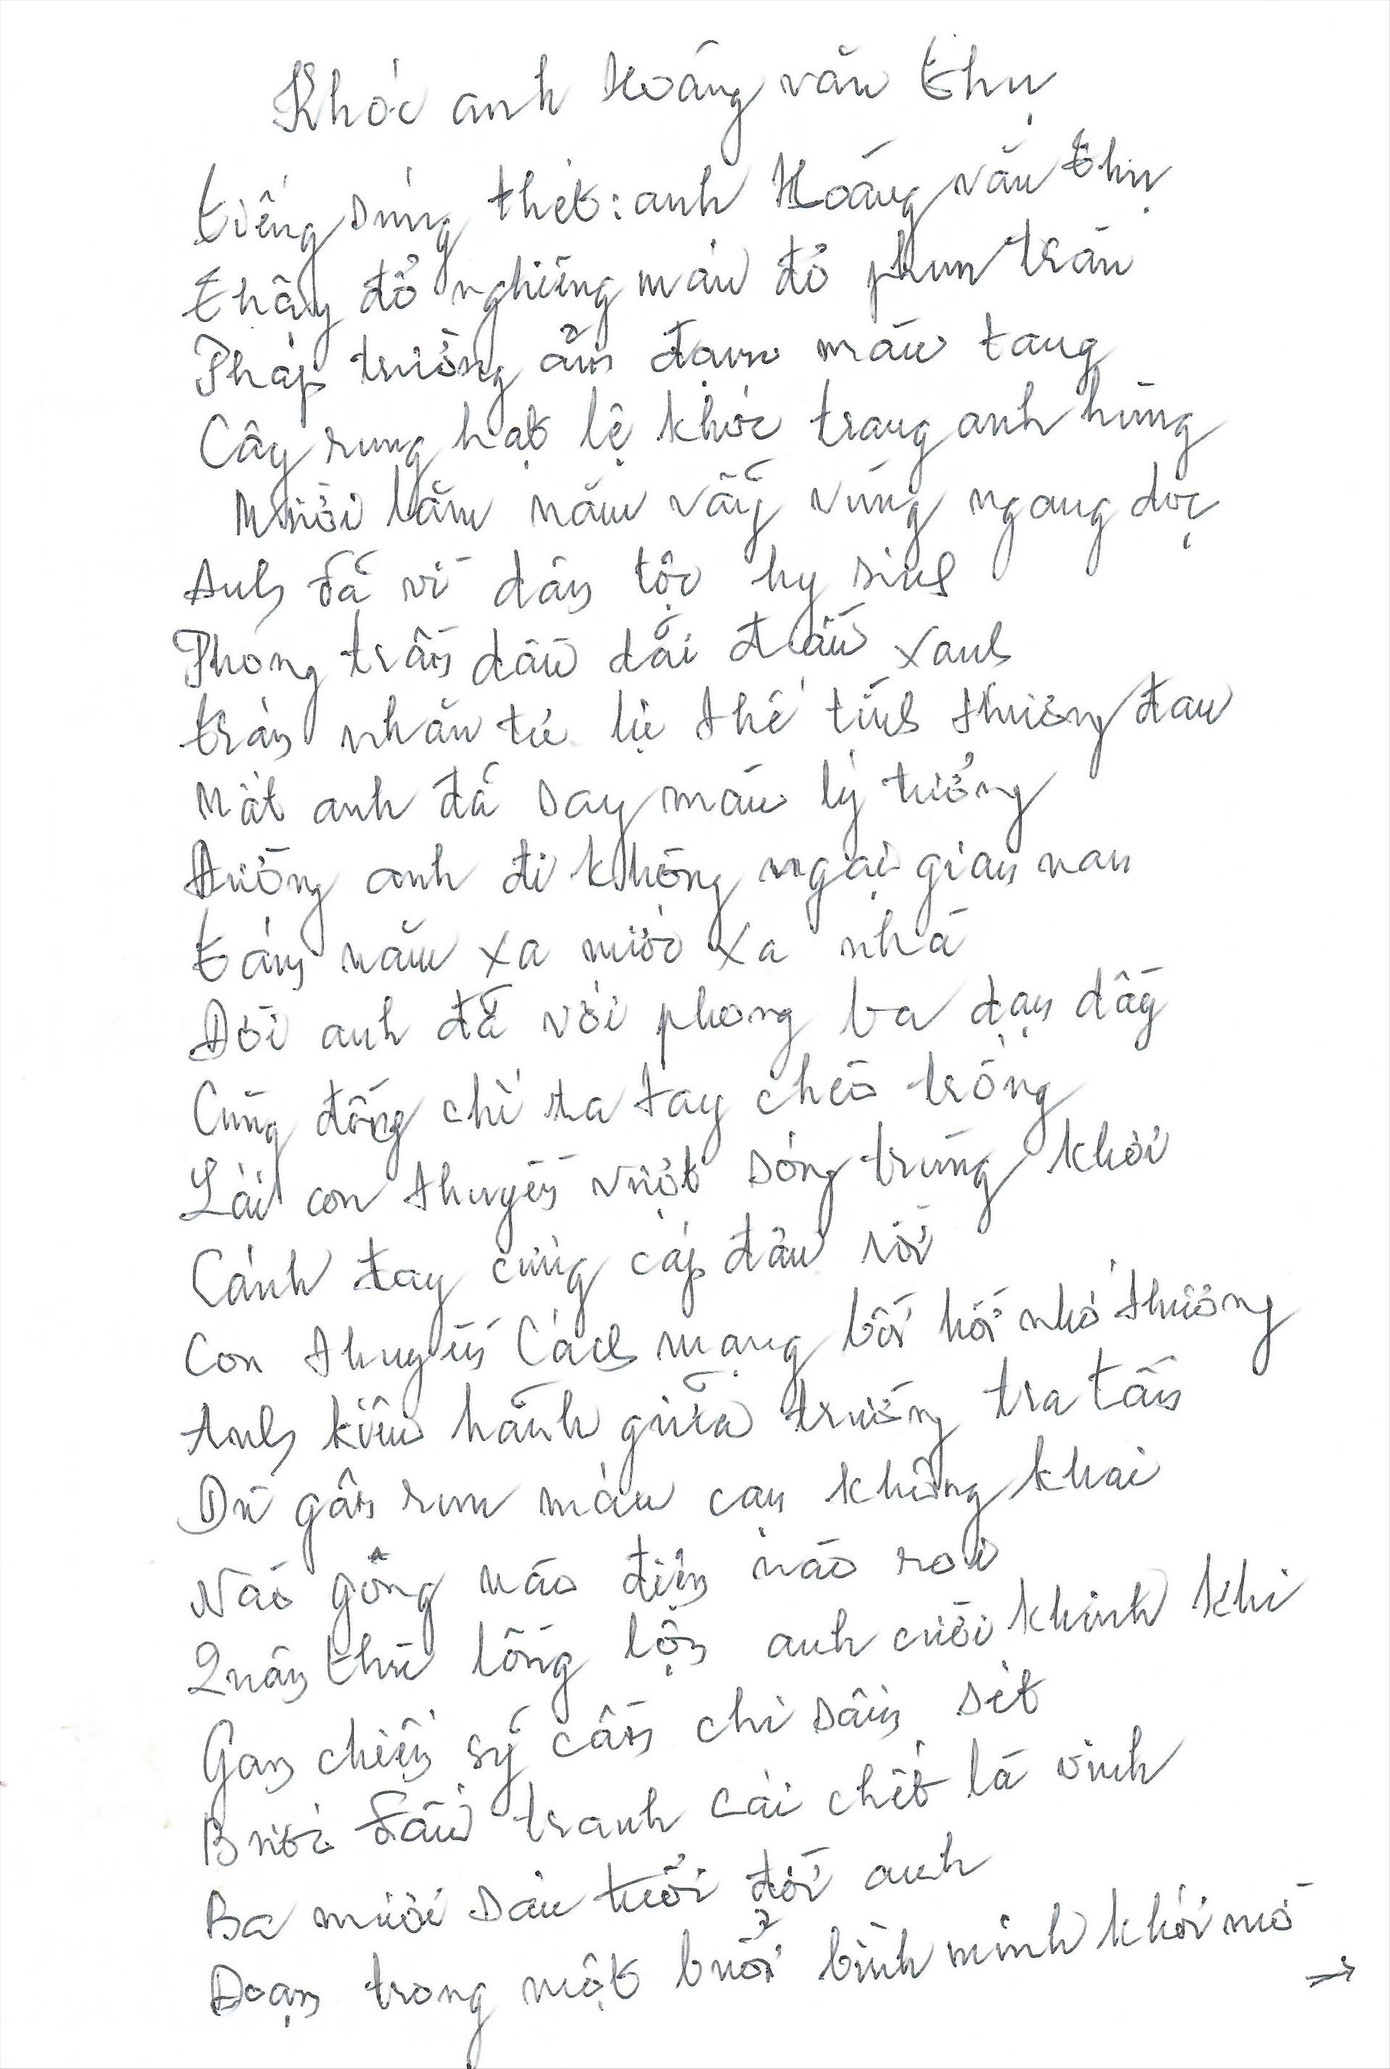 Khóc anh Hoàng văn thụ
tiếng súng thét: anh Hoàng văn thụ
thây đổ nghiêng máu đỏ phun trào
Pháp trường ảm đạm màu tang
Cây rung hạt lệ khóc trang anh hùng
Mười lăm năm vẫy vùng ngang dọc
Anh đã vì dân tộc hy sinh
Phong trần dầu dãi đầu xanh
trán nhăn tư lự thế tình thương đau
Mắt anh đã say màu lý tưởng
Đường anh đi không ngại gian nan
tám năm xa nước xa nhà
Đời anh đã với phong ba dạn dầy
Cùng đồng chí ra tay chèo trống
Lái con thuyền vượt sóng trùng khơi
Cánh tay cứng cáp đâu rồi
Con thuyền Cách mạng bồi hồi nhớ thương
Anh kiêu hãnh giữa trường tra tấn
Dù gân run máu cạn không khai
Nào gông nào điện nào roi
Quân thù lồng lộn anh cười khinh khi
Gan chiến sỹ cần chi sấm sét
Bước đấu tranh cái chết là vinh
Ba mươi sáu tuổi đời anh
Đoạn trong một buổi bình minh khói mờ
→